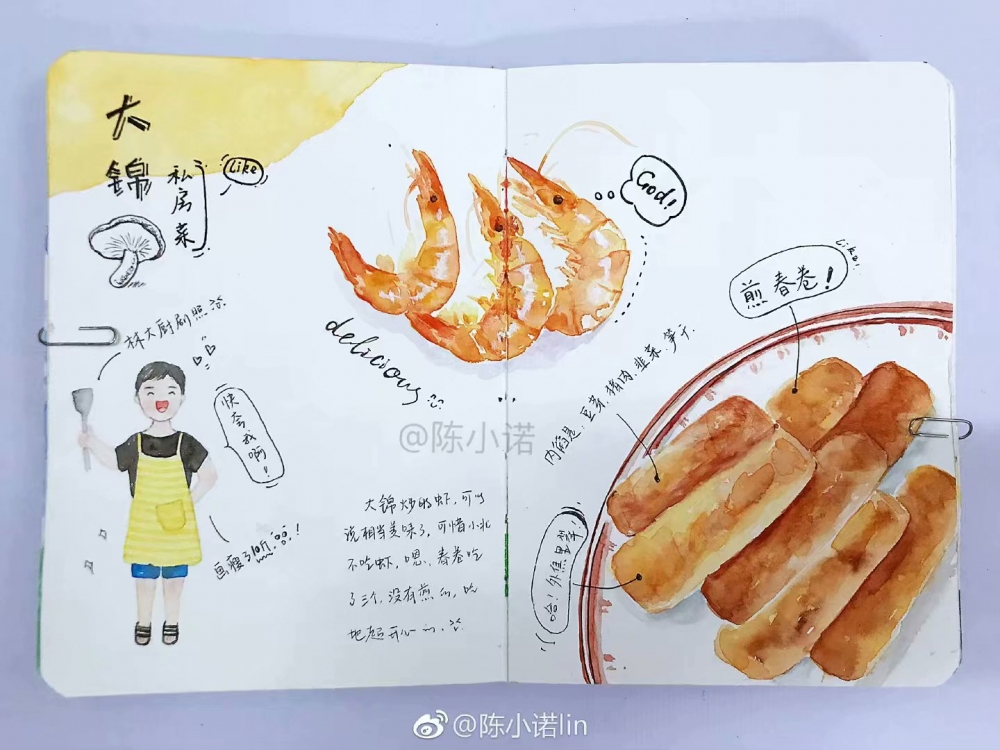 大
锦
私房菜
Like
林大厨剧照
快夸我啊!
画瘦了10斤!
delicious
God!
@陈小诺
大锦炒的虾,可以
说相当美味了,可惜小北
不吃虾,嗯,春卷吃
了三个,没有煎的,吃
地超开心的.
内馅是:豆芽.猪肉.韭菜.笋干.
Like!
煎春卷!
哈!外焦里嫩
@陈小诺lin